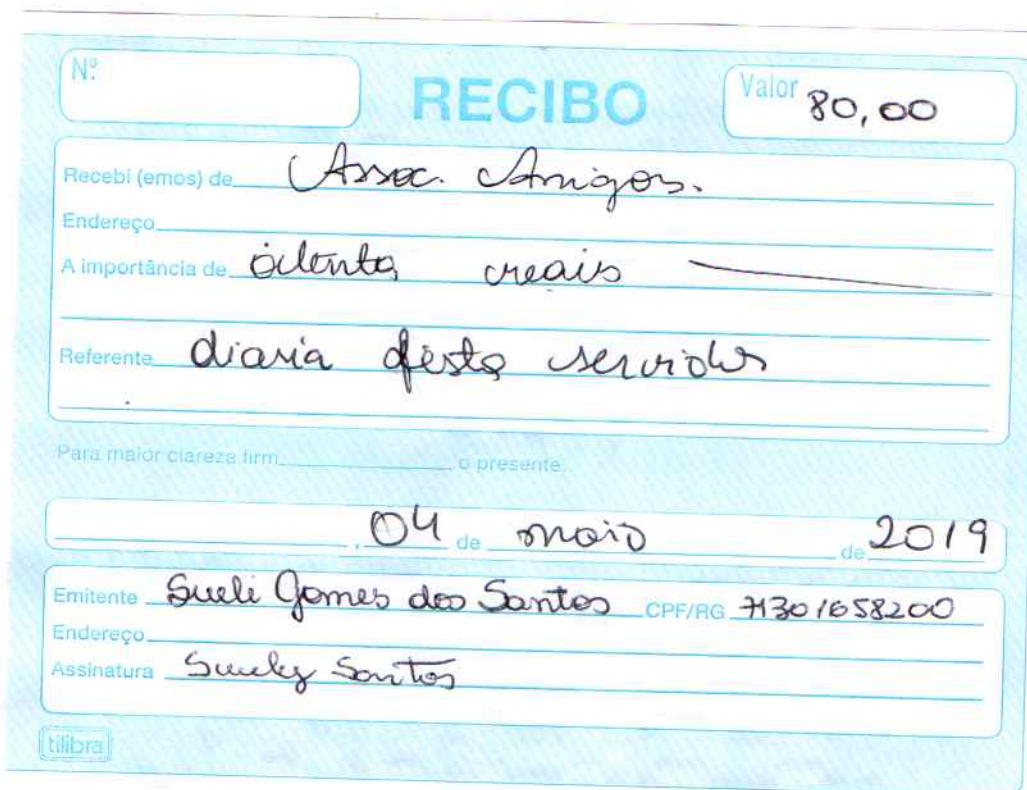 Nº
RECIBO
Valor 80,00
Recebi (emos) de Assoc. Amigos.
Endereço
A importância de oitenta reais
Referente diaria festa servidor
Para maior clareza firm o presente.
, 04 de maio de 2019
Emitente Sueli Gomes dos Santos CPF/RG 71301658200
Endereço
Assinatura Suely Santos
tilibra